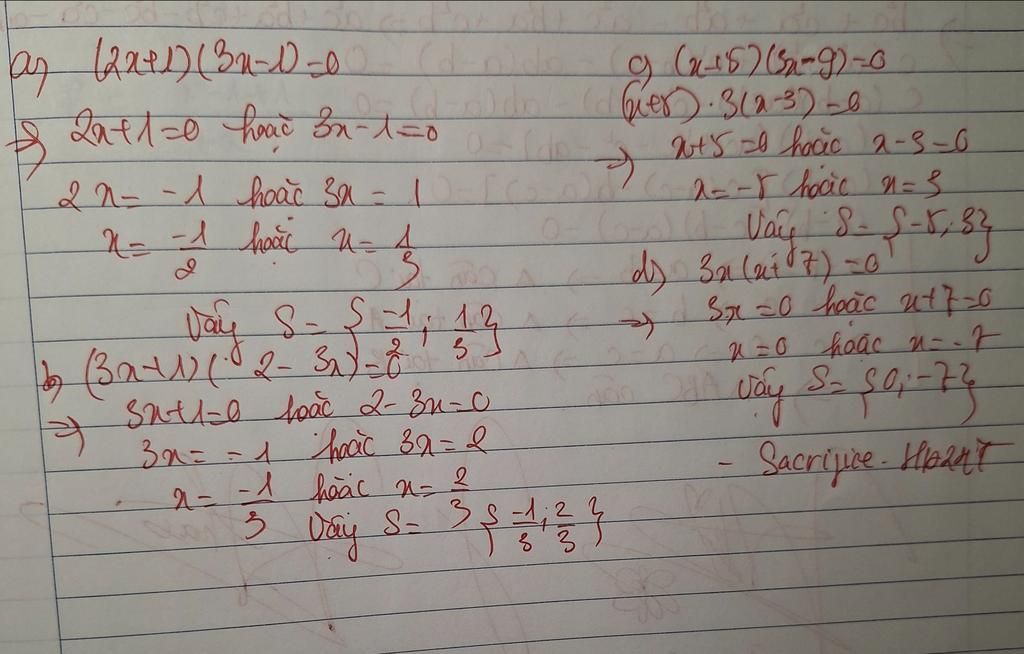 a) (2x+1)(3x-1)=0
=> 2x+1=0 hoặc 3x-1=0
2x = -1 hoặc 3x = 1
x = -1/2 hoặc x = 1/3
Vậy S = {-1/2; 1/3}
b) (3x+1)(2-3x)=0
=> 3x+1=0 hoặc 2-3x=0
3x = -1 hoặc 3x = 2
x = -1/3 hoặc x = 2/3
Vậy S = {-1/3; 2/3}
c) (x+5)(3x-9)=0
(x+5).3(x-3)=0
=> x+5=0 hoặc x-3=0
x=-5 hoặc x=3
Vậy S = {-5; 3}
d) 3x(x+7)=0
=> 3x=0 hoặc x+7=0
x=0 hoặc x=-7
Vậy S = {0; -7}
- Sacrifice -